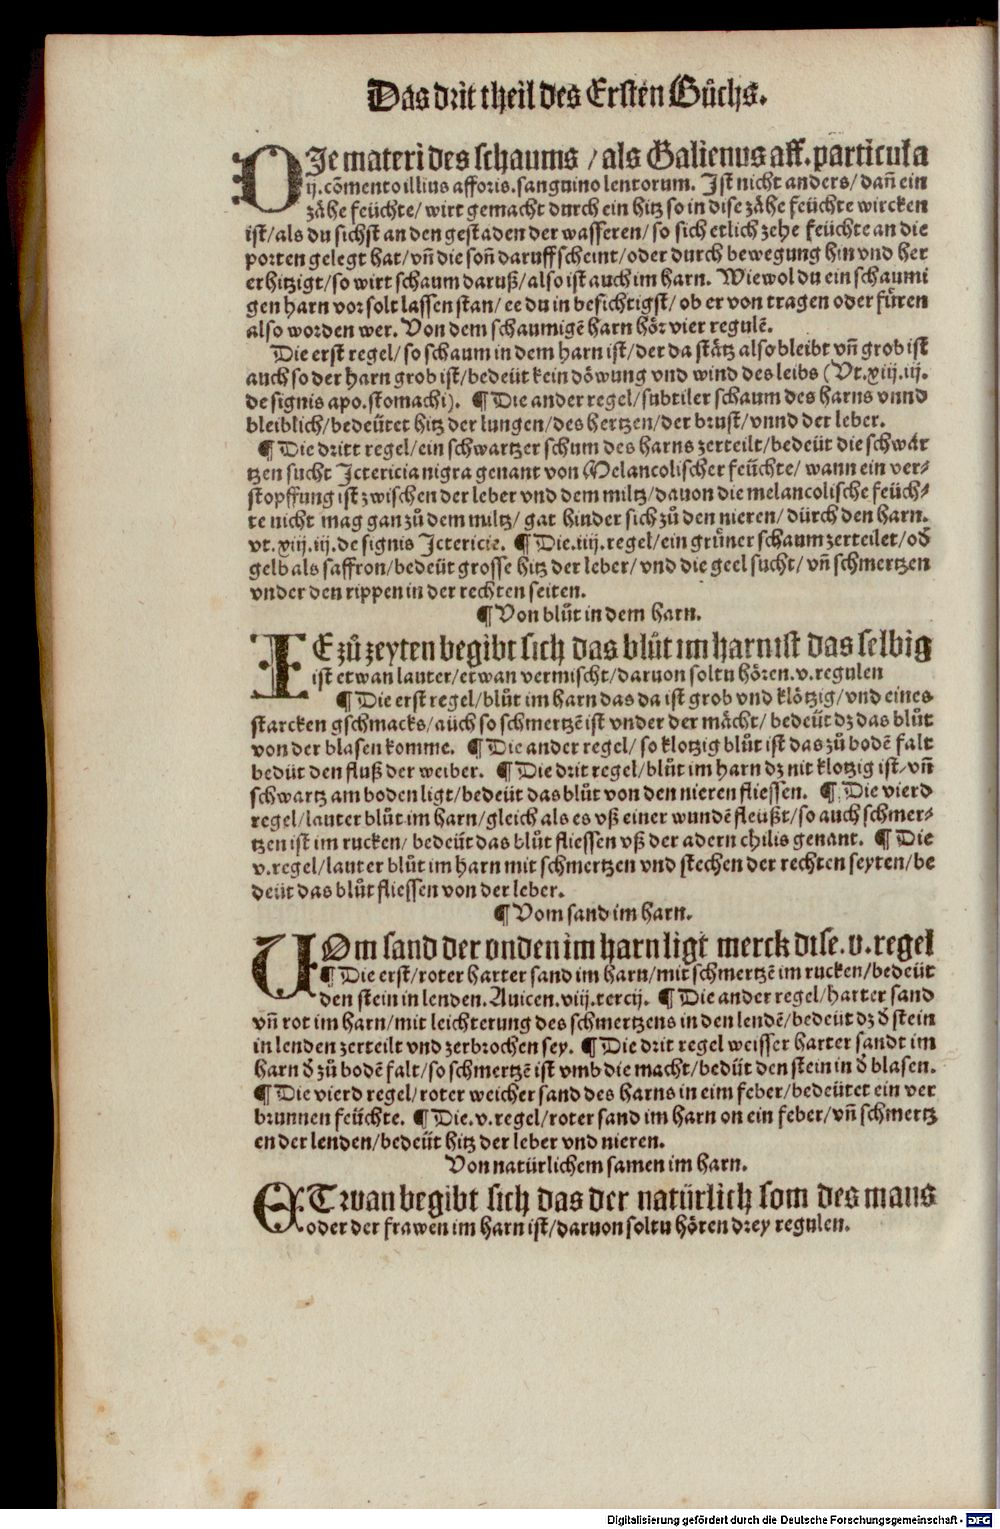 Das drit theil des Ersten Bůchs.
DJe materi des schaums / als Galienus aff. particula
ij. cõmento illius afforis. sanguino lentorum. Ist nicht anders / dañ ein
zähe feüchte / wirt gemacht durch ein hitz so in dise zähe feüchte wircken
ist / als du sichst an den gestaden der wasseren / so sich etlich zehe feüchte an die
porten gelegt hat / vñ die soñ daruff scheint / oder durch bewegung hin vnd her
erhitzigt / so wirt schaum daruß / also ist auch im harn. Wiewol du ein schaumi
gen harn vor solt lassen stan / ee du in besichtigst / ob er von tragen oder füren
also worden wer. Von dem schaumigẽ harn hör vier regulẽ.
Die erst regel / so schaum in dem harn ist / der da stätz also bleibt vñ grob ist
auch so der harn grob ist / bedeüt kein döwung vnd wind des leibs (Vt. xiij. iij.
de signis apo. stomachi). ¶ Die ander regel / subtiler schaum des harns vnnd
bleiblich / bedeütet hitz der lungen / des hertzen / der brust / vnnd der leber.
¶ Die dritt regel / ein schwartzer schum des harns zerteilt / bedeüt die schwär
tzen sucht Ictericia nigra genant von Melancolischer feüchte / wann ein ver⸗
stopffung ist zwischen der leber vnd dem miltz / dauon die melancolische feüch⸗
te nicht mag gan zů dem miltz / gat hinder sich zů den nieren / dürch den harn.
vt. xiij. iij. de signis Ictericie. ¶ Die. iiij. regel / ein grüner schaum zerteilet / oď
gelb als saffron / bedeüt grosse hitz der leber / vnd die geel sucht / vñ schmertzen
vnder den rippen in der rechten seiten.
¶ Von blůt in dem harn.
ZE zů zeyten begibt sich das blůt im harn ist das selbig
ist etwan lauter / etwan vermischt / daruon soltu hören. v. regulen
¶ Die erst regel / blůt im harn das da ist grob vnd klötzig / vnd eines
starcken gschmacks / auch so schmertzẽ ist vnder der mächt / bedeüt dz das blůt
von der blasen komme. ¶ Die ander regel / so klotzig blůt ist das zů bodẽ falt
bedüt den fluß der weiber. ¶ Die drit regel / blůt im harn dz nit klotzig ist / vñ
schwartz am boden ligt / bedeüt das blůt von den nieren fliessen. ¶ Die vierd
regel / lauter blůt im harn / gleich als es vß einer wundẽ fleüßt / so auch schmer⸗
tzen ist im rucken / bedeüt das blůt fliessen vß der adern chilis genant. ¶ Die
v. regel / lauter blůt im harn mit schmertzen vnd stechen der rechten seyten / be
deüt das blůt fliessen von der leber.
¶ Vom sand im harn.
VOm sand der vnden im harn ligt merck dise. v. regel
¶ Die erst / roter harter sand im harn / mit schmertzẽ im rucken / bedeüt
den stein in lenden. Auicen. viij. tercij. ¶ Die ander regel / harter sand
vñ rot im harn / mit leichterung des schmertzens in den lendẽ / bedeüt dz ď stein
in lenden zerteilt vnd zerbrochen sey. ¶ Die drit regel weisser harter sandt im
harn ď zů bodẽ falt / so schmertzẽ ist vmb die macht / bedüt den stein in ď blasen.
¶ Die vierd regel / roter weicher sand des harns in eim feber / bedeütet ein ver
brunnen feüchte. ¶ Die. v. regel / roter sand im harn on ein feber / vñ schmertz
en der lenden / bedeüt hitz der leber vnd nieren.
Von natürlichem samen im harn.
ETwan begibt sich das der natürlich som des mans
oder der frawen im harn ist / daruon soltu hören drey regulen.
Digitalisierung gefördert durch die Deutsche Forschungsgemeinschaft - DFG